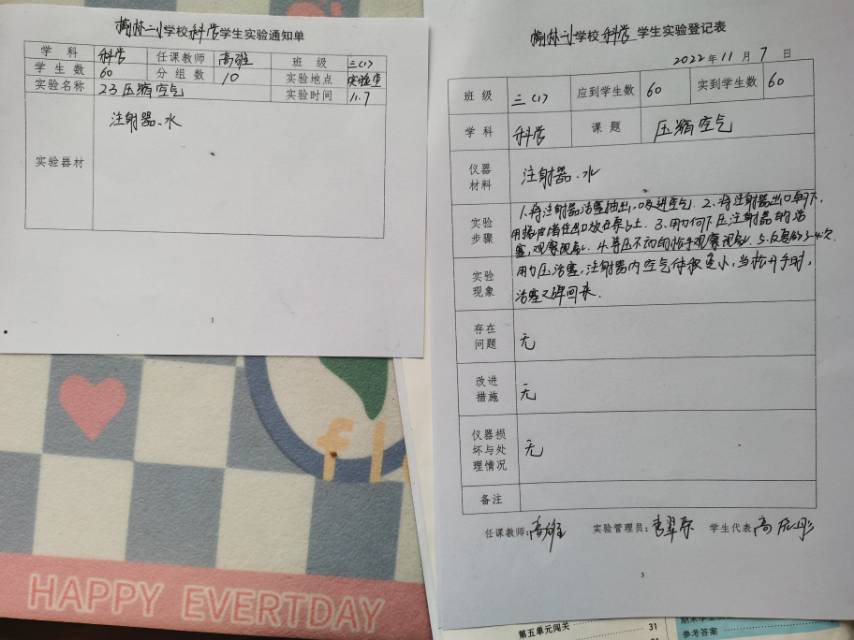 榆林二小学校科学学生实验通知单
学 科 科学 任课教师 高雄 班 级 三(1)
学 生 数 60 分 组 数 10 实验地点 实验室
实验名称 23压缩空气 实验时间 11.7
实验器材 注射器、水
1
榆林二小学校科学学生实验登记表
2022年11月7日
班 级 三(1) 应到学生数 60 实到学生数 60
学 科 科学 课 题 压缩空气
仪器
材料 注射器、水
实验
步骤
1.将注射器活塞抽出,吸进空气. 2.将注射器出口朝下,
用橡皮堵住出口放在桌上. 3.用力向下压注射器的活
塞,观察现象. 4.等压不动时松手观察现象. 5.反复做3-4次
实验
现象
用力压活塞,注射器内空气体积变小,当松开手时,
活塞又弹回来.
存在
问题 无
改进
措施 无
仪器损
坏与处
理情况 无
备注
任课教师:高雄 实验管理员: 学生代表:高
3
HAPPY EVERTDAY
第五单元闯关 31
参考答案